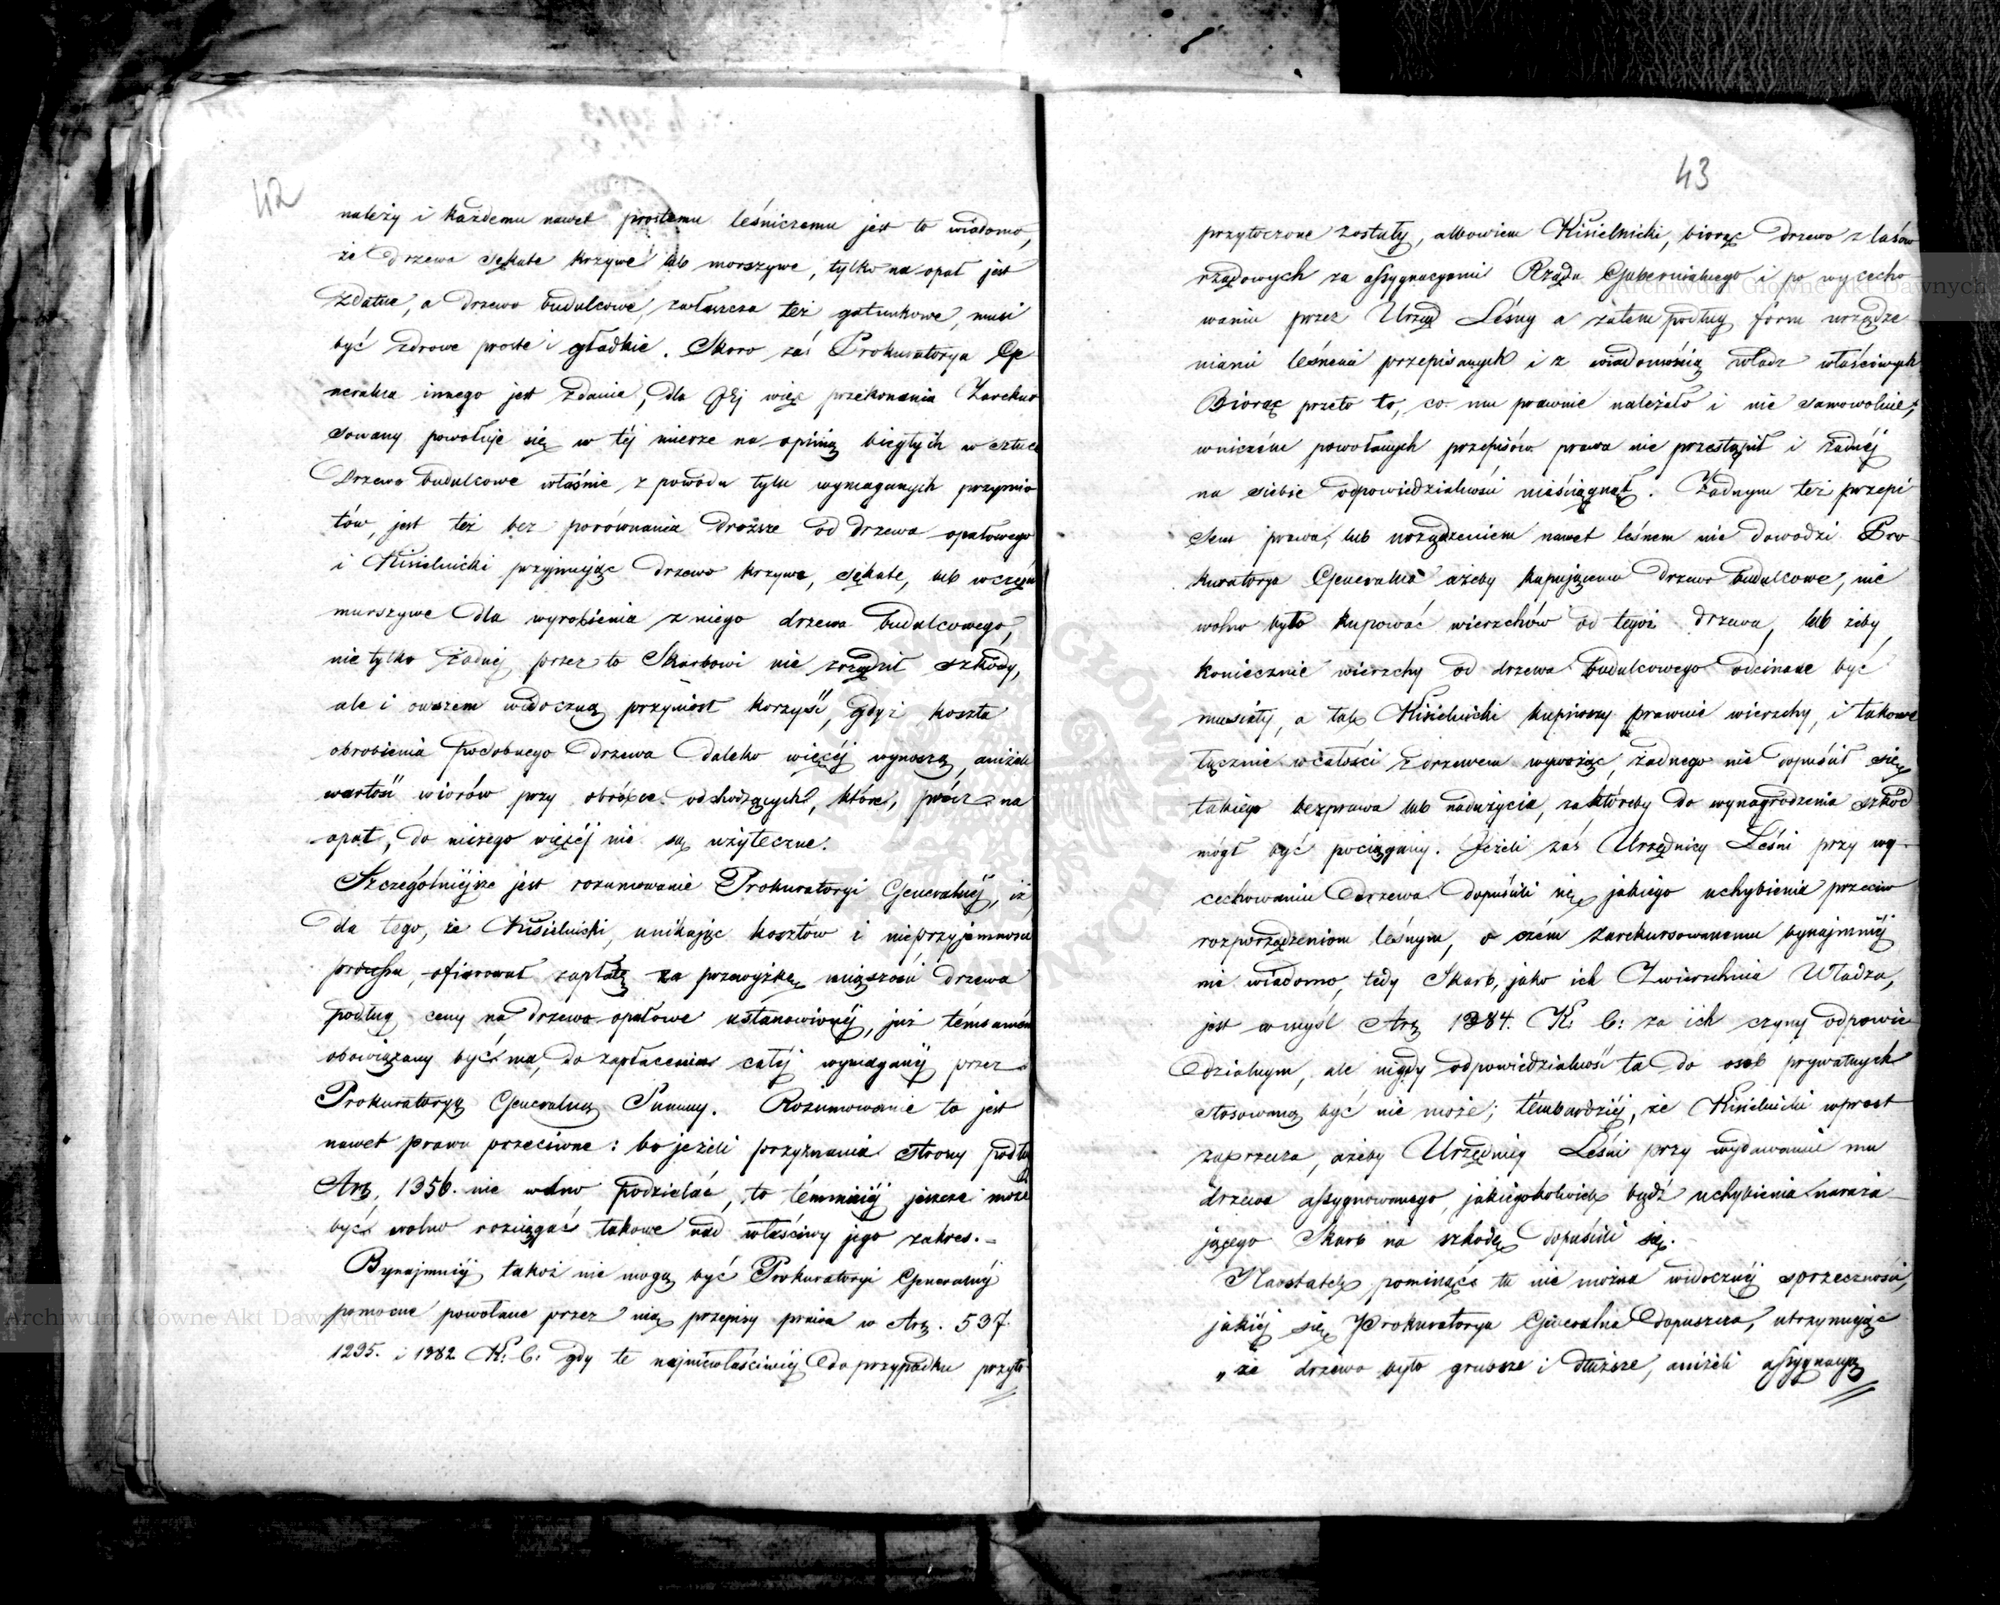 42
należy i każdemu nawet prostemu leśniczemu jest to wiadomo,
że drzewa sękate krzywe lub morszywe, tylko na opał jest
zdatne, a drzewo budulcowe, zwłaszcza też gatunkowe, musi
być zdrowe proste i gładkie. Skoro zaś Prokuratorya Ge
neralna innego jest zdania, dla Jej więc przekonania Zarekur
sowany powołuje się w téj mierze na opinią biegłych w sztuce
Drzewo budulcowe właśnie z powodu tylu wymaganych przymio
tów, jest też bez porównania droższe od drzewa opałowego
i Kisielnicki przyjmując drzewo krzywe, sękate, lub w części
murszywe dla wyrobienia z niego drzewa budulcowego,
nietylko żadnéj przez to Skarbowi nie zrządził szkody,
ale i owszem widoczną przyniósł korzyść, gdyż koszta
obrobienia podobnego drzewa daleko więcéj wynoszą, aniżeli
wartość wiórów przy obróbce odchodzących, które, prócz na
opał, do niczego więcéj nie są użyteczne.
Szczególniejsze jest rozumowanie Prokuratoryi Generalnéj, iż
dla tego, że Kisielnicki, unikając kosztów i nieprzyjemności
processu, ofiarował zapłatę za przewyżkę miąższości drzewa
podług ceny na drzewo opałowe ustanowionéj, już témsamém
obowiązany być ma, do zapłacenia całéj wymaganéj przez
Prokuratoryą Generalną Summy. Rozumowanie to jest
nawet prawu przeciwne: bo jeżeli przyznania strony podług
Art. 1356. nie wolno podzielać, to témmniéj jeszcze może
być wolno rozciągać takowe nad właściwy jego zakres.–
Bynajmniéj takoż nie mogą być Prokuratoryi Generalnéj
pomocne powołane przez nią przepisy prawa w Art. 537.
1295. i 1382 K: C: gdy te najniewłaściwiéj do przypadku przyto
43
przytoczone zostały, albowiem Kisielnicki, biorąc drzewo z lasów
rządowych za assygnacyami Rządu Gubernialnego i po wycecho
waniu przez Urząd Leśny a zatem podług form urządze
niami leśnemi przepisanych i z wiadomością władz właściwych
Biorąc przeto to, co mu prawnie należało i nie samowolnie,
w niczém powołanych przepisów prawa nie przestąpił i żadnéj
na siebie odpowiedzialności nieściągnął. Żadnym też przepi
sem prawa, lub urządzeniem nawet leśnem nie dowodzi Pro
kuratorya Generalna ażeby kupującemu drzewo budulcowe, nie
wolno było kupować wierzchów od tegoż drzewa, lub żeby
koniecznie wierzchy od drzewa budulcowego odcinane być
musiały, a tak Kisielnicki kupiwszy prawnie wierzchy, i takowe
łącznie w całości z drzewem wywożąc, żadnego nie dopuścił się
takiego bezprawia lub nadużycia, za któreby do wynagrodzenia szkód
mógł być pociągany. Jeżeli zaś Urzędnicy Leśni przy wy-
cechowaniu drzewa dopuścili się jakiego uchybienia przeciw
rozporządzeniom leśnym, o czém zarekursowanemu bynajmniéj
nie wiadomo, tedy Skarb, jako ich Zwierzchnia Władza,
jest w myśl Art. 1384. K: C: za ich czyny odpowie
dzialnym, ale nigdy odpowiedzialność ta do osób prywatnych
stosowaną być nie może; tembardziéj, że Kisielnicki wprost
zaprzecza, ażeby Urzędnicy Leśni przy wydawaniu mu
drzewa assygnowanego, jakiegokolwiek bądź uchybienia naraża-
jącego Skarb na szkodę dopuścili się.
Naostatek pominąć tu nie można widocznéj sprzeczności,
jakiéj się Prokuratorya Generalna dopuszcza, utrzymując
„że drzewo było grubsze i dłuższe, aniżeli assygnacyą